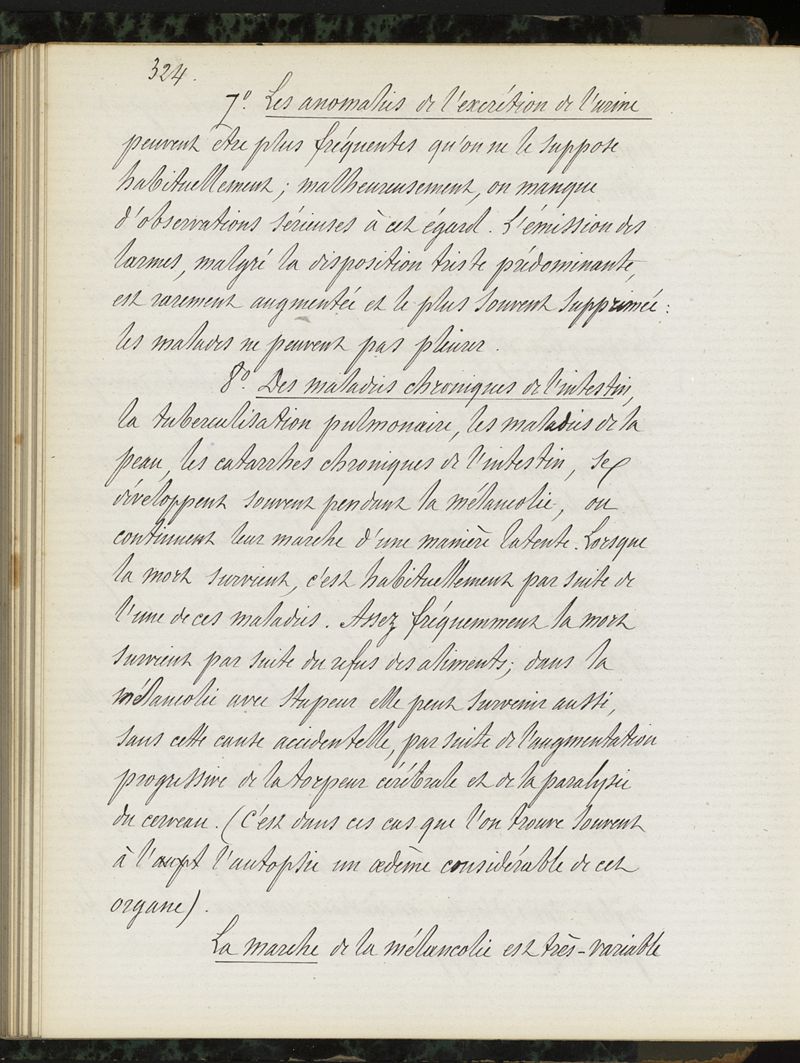 324.
7º. Les anomalies de l'excrétion de l'urine
peuvent être plus fréquentes qu'on ne le suppose
habituellement ; malheureusement, on manque
d'observations sérieuses à cet égard. L'émission des
larmes, malgré la disposition triste prédominante,
est rarement augmentée et le plus souvent supprimée :
les malades ne peuvent pas pleurer.
8º. Des maladies chroniques de l'intestin,
la tuberculisation pulmonaire, les maladies de la
peau, les catarrhes chroniques de l'intestin, se
développent souvent pendant la mélancolie, ou
continuent leur marche d'une manière latente. Lorsque
la mort survient, c'est habituellement par suite de
l'une de ces maladies. Assez fréquemment la mort
survient par suite du refus des aliments ; dans la
mélancolie avec stupeur elle peut survenir aussi,
sans cette cause accidentelle, par suite de l'augmentation
progressive de la torpeur cérébrale et de la paralysie
du cerveau. (C'est dans ces cas que l'on trouve souvent
à l'autopsie un œdème considérable de cet
organe).
La marche de la mélancolie est très-variable